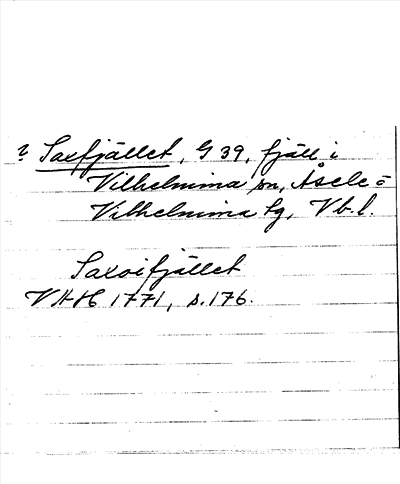 ? Saxfjället, G 39, fjäll i
Vilhelmina sn, Åsele o
Vilhelmina tg, Vb.l.
Saxoifjället
VAH 1771, s. 176.